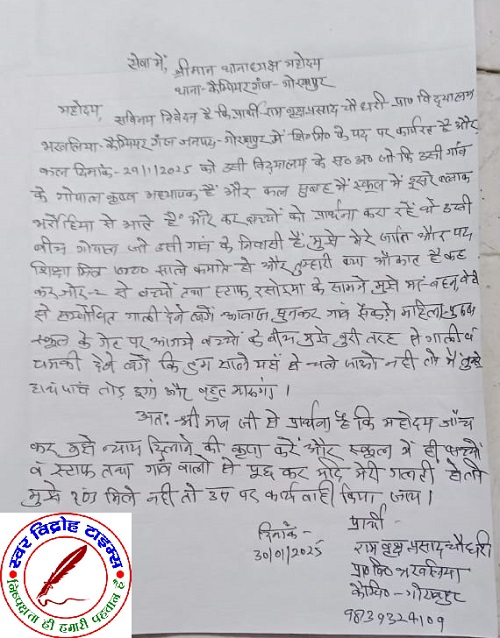 सेवा में, श्रीमान थानाध्यक्ष महोदय
थाना-कैम्पियरगंज-गोरखपुर
महोदय,
सविनय निवेदन है कि, प्रार्थी-राम वृक्ष प्रसाद चौधरी-प्रा० विद्यालय
भखलिया-कैम्पियरगंज जनपद-गोरखपुर में शि०मि० के पद पर कार्यरत है और
कल दिनांक-29/1/2025 को उसी विद्यालय के स० अ० जो कि उसी गाँव
के गोपाल कृष्ण अध्यापक हैं और कल सुबह में स्कूल में दूसरे ब्लाक
भरोहिया से आते हैं और कर बच्चों को प्रार्थना करा रहे थे उसी
बीच गोपाल जो उसी गाव के निवासी हैं, मुझे मेरे जाति और पद
शिक्षा मित्र साले कमाते हो और तुम्हारी क्या औकात है कह
कर जोर-२ से बच्चों तथा स्टाफ, रसोइया के सामने मुझे माँ बहन, बेटी
से सम्बोधित गाली देने लगे आवाज सुनकर गाव सैकड़ो महिला-पुरुष
स्कूल के गेट पर आगये बच्चों के बीच मुझे बुरी तरह से गाली व
धमकी देने लगे कि तुम साले यहाँ से चले जाओ नही तो मैं तुम्हे
हाथ पाव तोड़ दूंगा और बहुत मारूंगा।
अतः-श्रीमान जी से प्रार्थना है कि महोदय जाँच
कर मुझे न्याय दिलाने की कृपा करें और स्कूल में ही बच्चों
व स्टाफ तथा गाव वालो से पूछ कर यदि मेरी गलती हो तो
मुझे दण्ड मिले नही तो उस पर कार्यवाही किया जाय।
दिनांक-
30/01/2025
प्रार्थी-
राम वृक्ष प्रसाद चौधरी
प्रा० वि० भखलिया
कैम्पि०-गोरखपुर
9839324109
स्वर विद्रोह टाइम्स
निष्पक्षता ही हमारी पहचान है